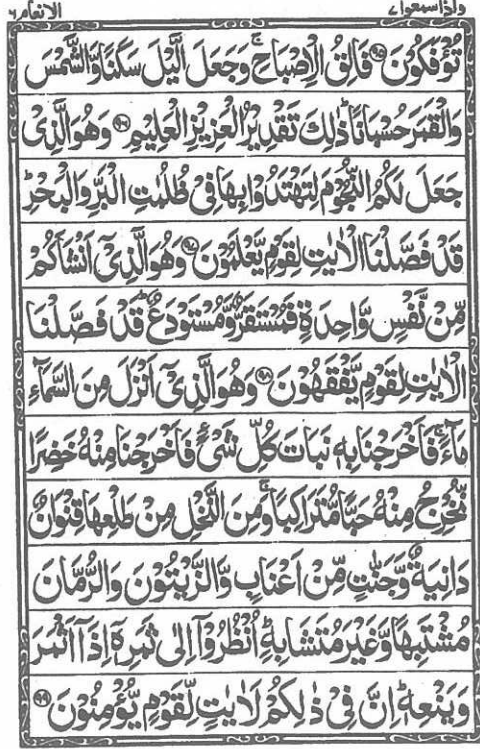 واذاسمعوا ٧ الانعام ٦
تُؤْفَكُوْنَ ۹۵ فَالِقُ الْاِصْبَاحِ ۚ وَجَعَلَ الَّيْلَ سَكَنًا وَّالشَّمْسَ
وَالْقَمَرَ حُسْبَانًا ؕ ذٰلِكَ تَقْدِيْرُ الْعَزِيْزِ الْعَلِيْمِ ۹۶ وَهُوَ الَّذِىْ
جَعَلَ لَكُمُ النُّجُوْمَ لِتَهْتَدُوْا بِهَا فِىْ ظُلُمٰتِ الْبَرِّ وَالْبَحْرِ ؕ
قَدْ فَصَّلْنَا الْاٰيٰتِ لِقَوْمٍ يَّعْلَمُوْنَ ۹۷ وَهُوَ الَّذِىْۤ اَنْشَاَكُمْ
مِّنْ نَّفْسٍ وَّاحِدَةٍ فَمُسْتَقَرٌّ وَّمُسْتَوْدَعٌ ؕ قَدْ فَصَّلْنَا
الْاٰيٰتِ لِقَوْمٍ يَّفْقَهُوْنَ ۹۸ وَهُوَ الَّذِىْۤ اَنْزَلَ مِنَ السَّمَآءِ
مَآءً ۚ فَاَخْرَجْنَا بِهٖ نَبَاتَ كُلِّ شَىْءٍ فَاَخْرَجْنَا مِنْهُ خَضِرًا
نُّخْرِجُ مِنْهُ حَبًّا مُّتَرَاكِبًا ۚ وَمِنَ النَّخْلِ مِنْ طَلْعِهَا قِنْوَانٌ
دَانِيَةٌ وَّجَنّٰتٍ مِّنْ اَعْنَابٍ وَّالزَّيْتُوْنَ وَالرُّمَّانَ
مُشْتَبِهًا وَّغَيْرَ مُتَشَابِهٍ ؕ اُنْظُرُوْۤا اِلٰى ثَمَرِهٖۤ اِذَاۤ اَثْمَرَ
وَيَنْعِهٖ ؕ اِنَّ فِىْ ذٰلِكُمْ لَاٰيٰتٍ لِّقَوْمٍ يُّؤْمِنُوْنَ ۹۹